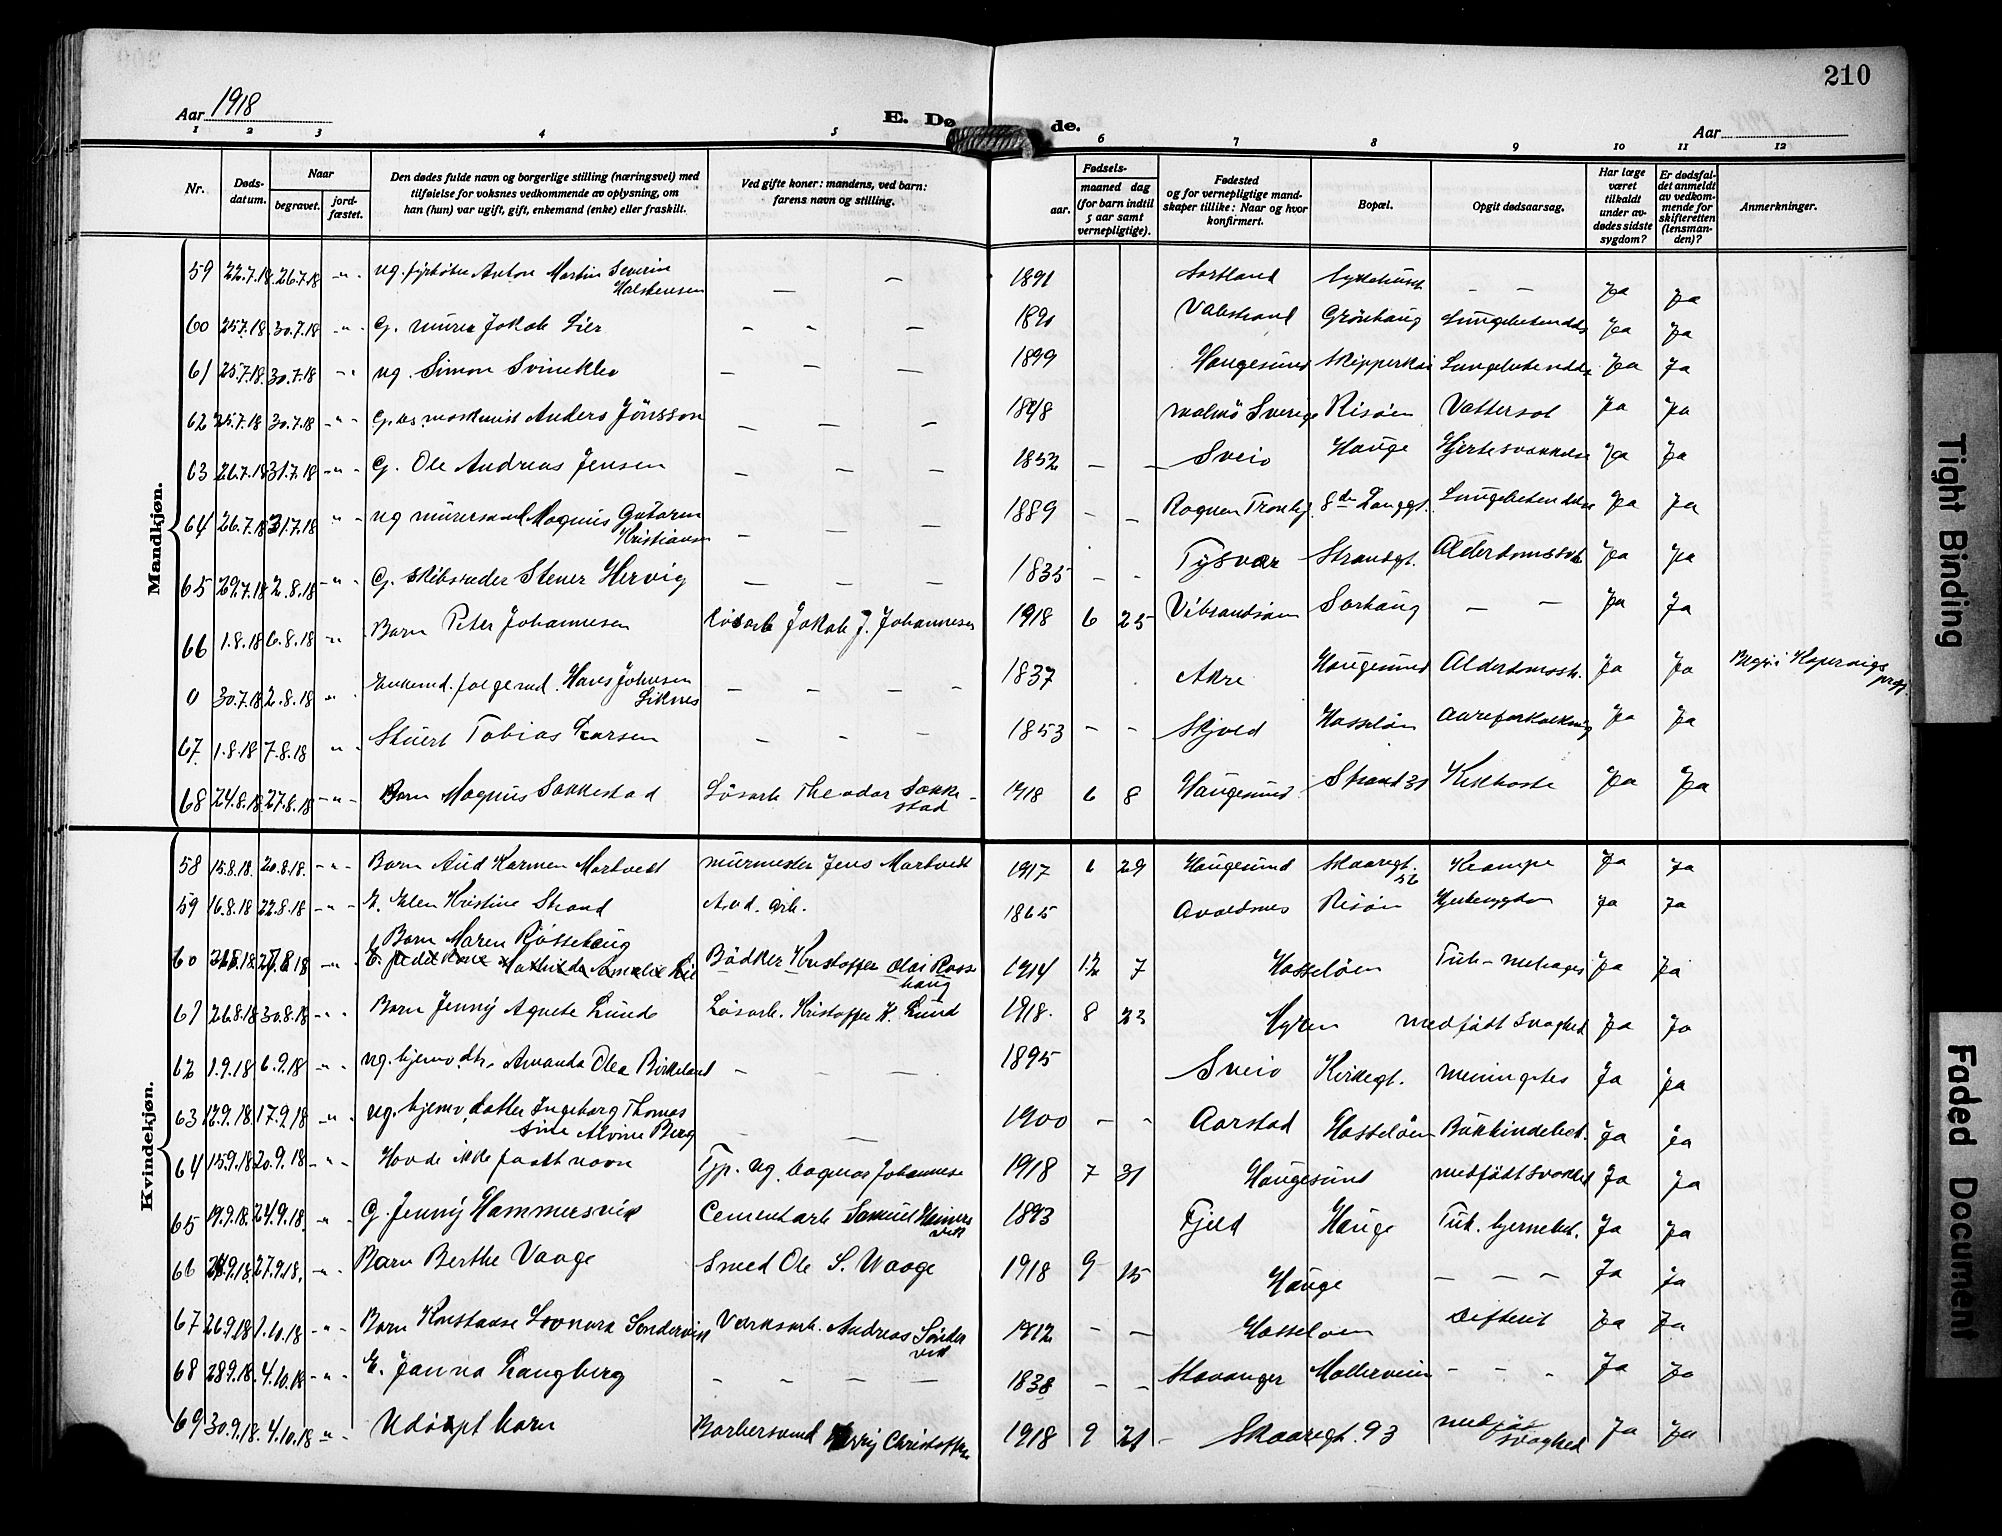 210
Aar 1918
E. Dø de.
Aar
1 2 3 4 5 6 7 8 9 10 11 12
Nr.
Døds-datum.
Naar
begravet.
jord-fæstet.
Den dødes fulde navn og borgerlige stilling (næringsvei) med
tilføielse for voksnes vedkommende av oplysning, om
han (hun) var ugift, gift, enkemand (enke) eller fraskilt.
Ved gifte koner: mandens, ved barn:
farens navn og stilling.
Fødsels-
aar.
maaned dag
(for barn indtil
5 aar samt
vernepligtige).
Fødested
og for vernepligtige mand-
skaper tillike: Naar og hvor
konfirmert.
Bopæl.
Opgit dødsaarsag.
Har læge
været
tilkaldt
under av-
dødes sidste
sygdom?
Er dødsfal-
det anmeldt
av vedkom-
mende for
skifteretten
(lensman-
den)?
Anmerkninger.
Mandkjøn.
59 22.7.18 26.7.18 -"- ug. fyrbøter Anton Martin Severin Halstensen — — 1891 Sortland Sykehuset — — Ja Ja
60 25.7.18 30.7.18 -"- G. murer Jakob Lier — — — 1890 Grönhaug Lungebetendelse Ja Ja
61 25.7.18. 30.7.18 -"- ug. Simon Svineklev — — — 1899 Haugesund Skipperkai Lungebetendelse Ja Ja
62 25.7.18. 30.7.18 -"- G. maskinist Anders Jönsson — — — 1878 Malmö Sverige Risöen Vattersot Ja Ja
63 26.7.18 31.7.18 -"- G. Ole Andreas Jensen — — — 1852 — — Sveio Hauge Hjertesvækkelse Ja Ja
64 26.7.18 31.7.18 "- ug murersvend Magnus Kristiansen — — — 1889 — — 8de Langgt. Lungebetendelse Ja Ja
65 29.7.18 2.8.18 -"- G. skibsreder Stener Hervig — — — 1835 - - Tysvær Strandgt. Alderdomssvak Ja Ja
66 1.8.18 6.8.18 -"- Barn Peter Johannesen Løsarb Jakob J. Johannesen 1918 6 25 Sorhaug — — Ja Ja
0 30.7.18 2.8.18 " Enkemd. folgemd. Hans Johnsen Liknes — — — — 1837 Akre Haugesund Alderdomssk. Ja Ja Begr. i Kopervigs prgj.
67. 1.8.18 7.8.18 " Stuert Tobias Larsen — — — 1853 - - Skjold Hasseløen Aareforkalkning Ja Ja
68 24.8.18. 27.8.18 -"- Barn Magnus Sakkestad Løsarb Theodor Sakkestad 1918 6 8 Haugesund Strand 31 Kikhoste Ja Ja
Kvindekjøn.
58 15.8.18. 20.8.18. -"- Barn Aud Karmen Mortvedt murmester Jens Mortvedt 1917 6 29 Haugesund Skaaregt. 56 Krampe Ja Ja
59 16.8.18 22.8.18 -"- E. Elen Kristine Strand Avd. arb. 1865 Avaldsnes Risöen Hjertesygdom Ja Ja
Barn Maren Røssehaug
60 27.8.18 -"- Bödker Kristoffer Olai Rossehaug 1914 12 7 Hasseløen Tub-meningit Ja Ja
61 26.8.18 30.8.18 -"- Barn Jenny Agnete Lunde Løsarb. Kristoffer K. Lund 1918. 8 23 medfødt svaghed Ja Ja
62 1.9.18 6.9.18 -"- ug. hjemv. dtr. Amanda Olea Birkeland — — — 1895 Sveio Kirkegt. Meningites Ja Ja
63 12.9.18. 17.9.18 -"- ug. hjemv. datter Ingeborg Thomassine Alvine Berg — — 1900 — - Aarstad Hasseløen Ja Ja
64 15.9.18 20.9.18 -"- Havde ikke faatt navn Typ. ug. Magnus Johannesen 1918 7 31 Haugesund medfødt svakhed Ja Ja
65 19.9.18. 24.9.18. " G. Jenny Hammersvik Cementarb Samuel Hamersvik 1893 Fjeld Hauge Tub. hjernebet. Ja Ja
66 24.9.18. 27.9.18. -"- Barn Berthe Vaage Smed Ole S. Waage 1918 9 15 Hauge — — — Ja Ja
67 26.9.18 1.10.18 -"- Barn Konstanse Leonora Söndervik Værksarb. Andreas Söndervik 1912 - — Hasseløen Difterit Ja Ja
68 28.9.18. 4.10.18 -"- E. Janna Langberg — — — — 1838 - — Stavanger Møllerveien - — - Ja Ja
69 30.9.18. 4.10.18 -"- Udöpt barn Barbersvend Christoffersen 1918 9 21 - Skaaregt. 93 medfødt svaghed Ja Ja
Tight Binding
Faded Document